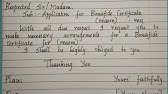 Respected Sir/Madam.
Sub:- Application for Bonafide Certificate
(reason) - req
With all due respect I request you to
make necessary arrangements for a Bonafide
Certificate for (reason)
I shall be highly obliged to you
Thanking You
Place: Yours faithfully